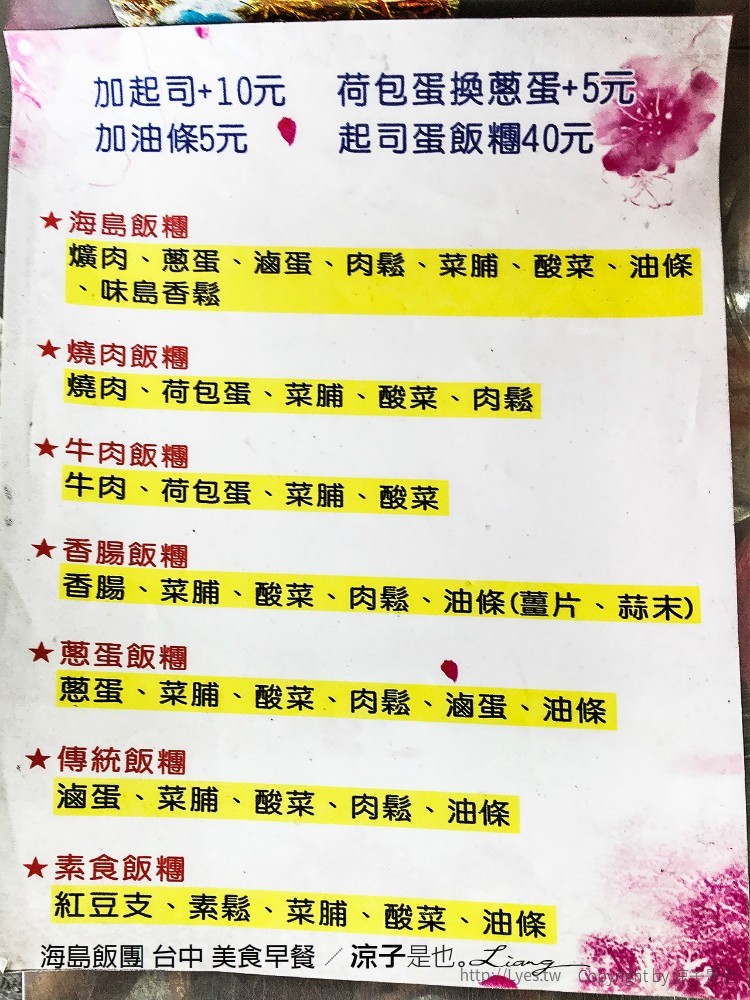 加起司+10元 荷包蛋換蔥蛋+5元
加油條5元 起司蛋飯糰40元
★海島飯糰
爌肉、蔥蛋、滷蛋、肉鬆、菜脯、酸菜、油條
、味島香鬆
★燒肉飯糰
燒肉、荷包蛋、菜脯、酸菜、肉鬆
★牛肉飯糰
牛肉、荷包蛋、菜脯、酸菜
★香腸飯糰
香腸、菜脯、酸菜、肉鬆、油條(薑片、蒜末)
★蔥蛋飯糰
蔥蛋、菜脯、酸菜、肉鬆、滷蛋、油條
★傳統飯糰
滷蛋、菜脯、酸菜、肉鬆、油條
★素食飯糰
紅豆支、素鬆、菜脯、酸菜、油條
海島飯團 台中 美食早餐 ／ 涼子是也。Liang
http://Lyes.tw Copyright by